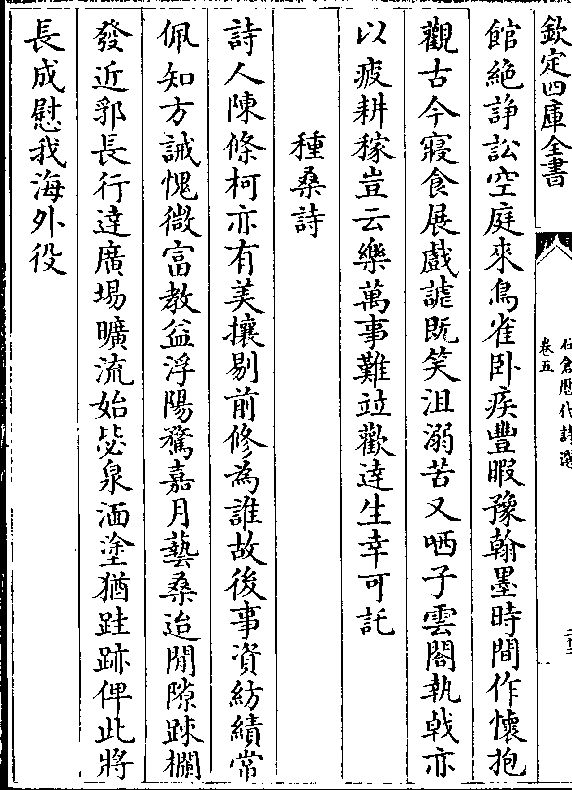 欽定四庫全書
石倉歷代詩選
卷五
館絶諍訟空庭來鳥雀卧疾豐暇豫翰墨時間作懷抱
觀古今寢食展戲謔既笑沮溺苦又哂子雲閣執戟亦
以疲耕稼豈云樂萬事難竝歡達生幸可託
種桑詩
詩人陳條柯亦有美攘剔前修為誰故後事資紡績常
佩知方誡愧微富教益浮陽驁嘉月藝桑迨閒隙踈欄
發近郛長行達廣場曠流始毖泉湎塗猶跬跡俾此將
長成慰我海外役